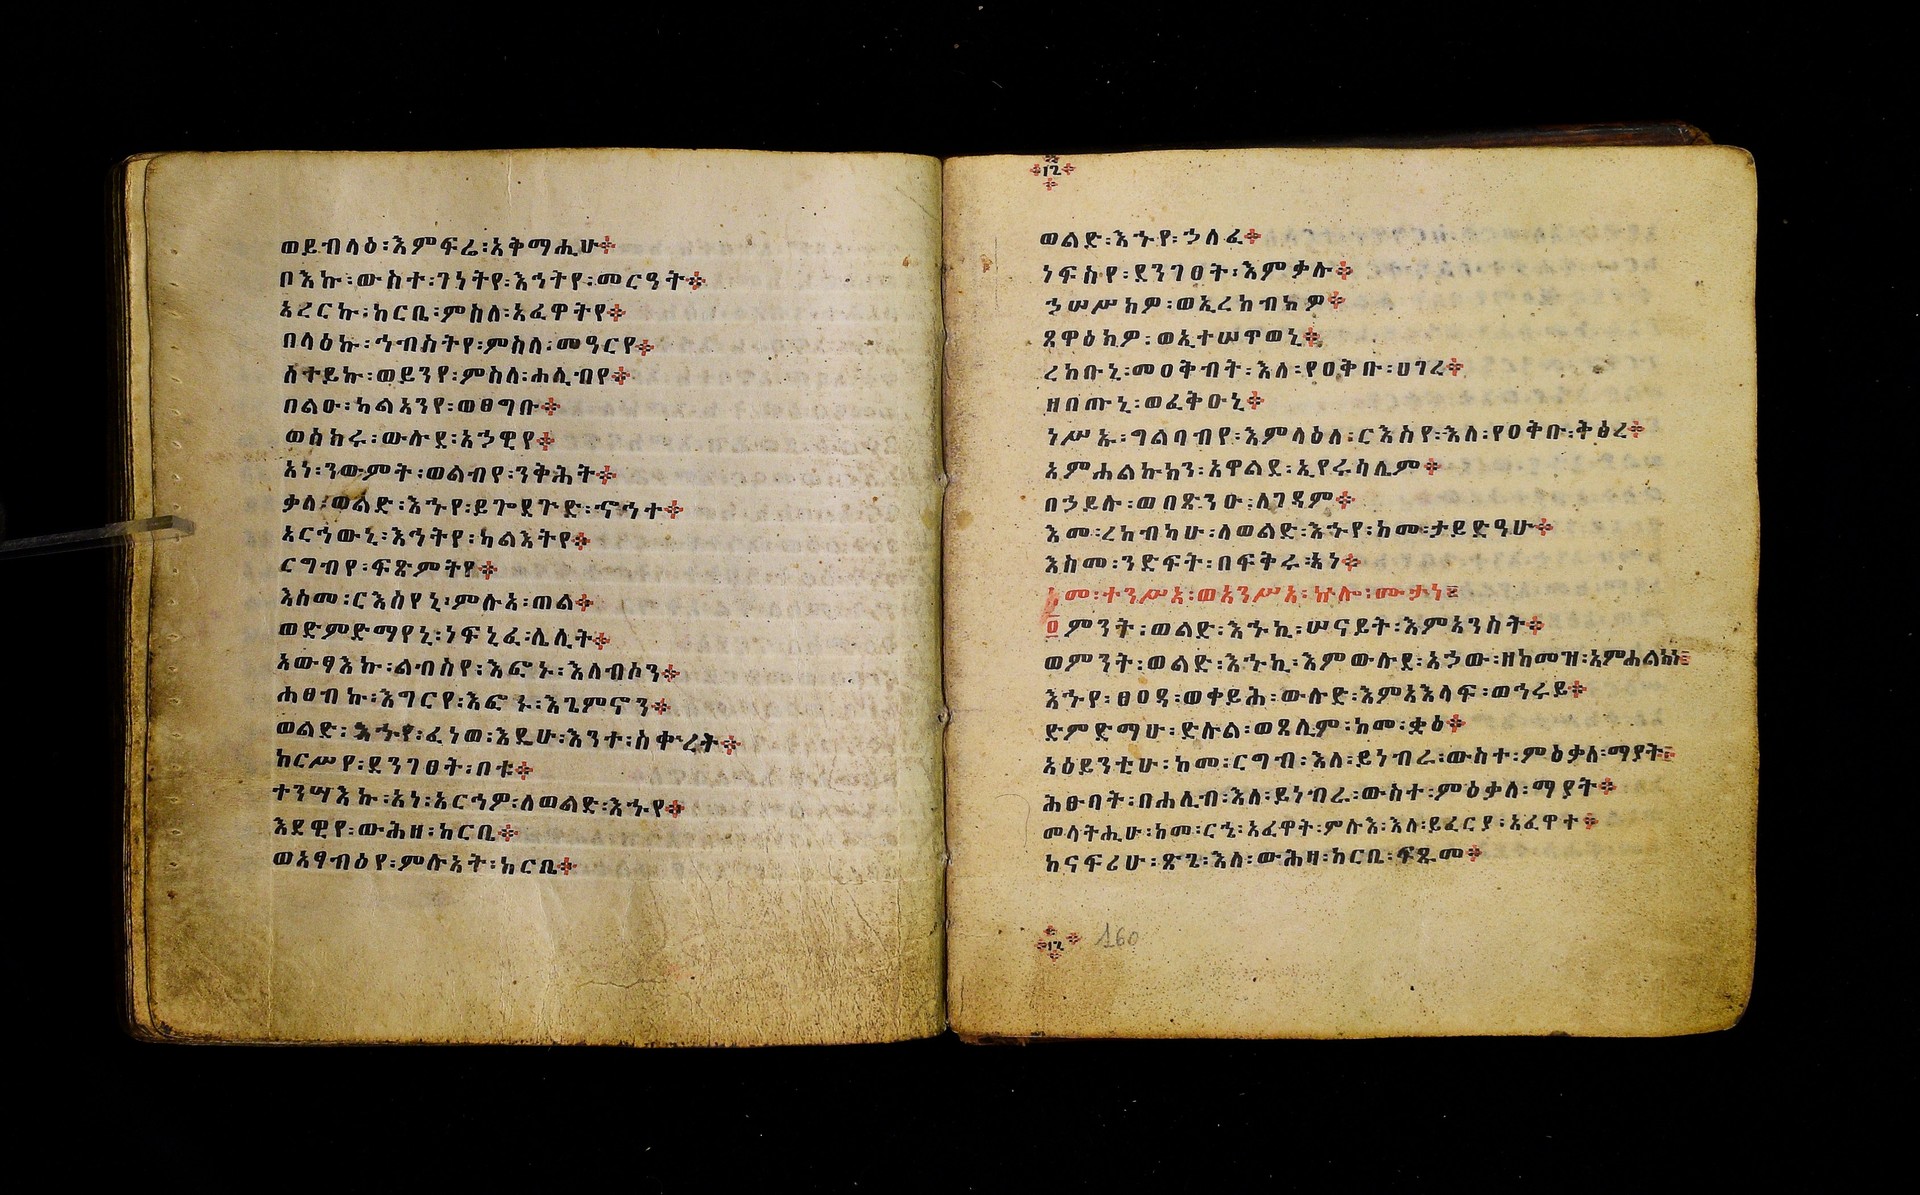 ወይብላዕ፡እምፍሬ፡አቅማሒሁ።
በእኩ፡ውስተ፡ገነትየ፡እኅትየ፡መርዓት።
አረርኩ፡ከርቤ፡ምስለ፡አፈዋትየ።
በላዕኩ፡ኅብስትየ፡ምስለ፡መዓርየ።
ሰተይኩ፡ወይንየ፡ምስለ፡ሐሊብየ።
በልዑ፡ካልአንየ፡ወፀግቡ።
ወስክሩ፡ውሉደ፡አኃዊየ።
አነ፡ንውምት፡ወልብየ፡ንቅሕት።
ቃለ፡ወልድ፡እኁየ፡ይጐደጕድ፡ኆኅተ።
አርኅውኒ፡እኅትየ፡ካልእትየ።
ርግብየ፡ፍጽምትየ።
እስመ፡ርእስየኒ፡ምሉአ፡ጠል።
ወድምድማየኒ፡ነፍኒፈ፡ሌሊት።
አውፃእኩ፡ልብስየ፡እፎኑ፡እለብሶን።
ሐፀብኩ፡እግርየ፡እፎኑ፡እጌምኖን።
ወልድ፡እኁየ፡ፈነወ፡እዴሁ፡እንተ፡ስቍረት።
ከርሥየ፡ደንገፀት፡በቱ።
ተንሣእኩ፡አነ፡አርኅዎ፡ለወልድ፡እኁየ።
እደዊየ፡ውሕዘ፡ከርቤ።
ወአፃብዕየ፡ምሉአት፡ከርቤ።
፲፪
ወልድ፡እኁየ፡ኃለፈ።
ነፍስየ፡ደንገፀት፡እምቃሉ።
ኀሠሥክዎ፡ወኢረከብክዎ።
ጸዋዕክዎ፡ወኢተሠጥወኒ።
ረከቡኒ፡መዐቅብት፡እለ፡የዐቅቡ፡ሀገረ።
ዘበጡኒ፡ወፈቅዑኒ።
ነሥኡ፡ግልባብየ፡እምላዕለ፡ርእስየ፡እለ፡የዐቅቡ፡ቅፅረ።
አምሐልኩክን፡አዋልደ፡ኢየሩሳሌም።
በኃይሉ፡ወበጽንዑ፡ለገዳም።
እመ፡ረከብካሁ፡ለወልድ፡እኁየ፡ከመ፡ታይድዓሁ።
እስመ፡ንድፍት፡በፍቅሩ፡አነ።
አመ፡ተንሥአ፡ወአንሥአ፡ኵሎ፡ሙታነ።
ምንት፡ወልድ፡እኁኪ፡ሠናይት፡እምአንስት።
ወምንት፡ወልድ፡እኁኪ፡እምውሉደ፡አኃው፡ዘከመዝ፡አምሐልክነ።
እኁየ፡ፀዐዳ፡ወቀይሕ፡ውሉድ፡እምአእላፍ፡ወኅሩይ።
ድምድማሁ፡ድሉል፡ወጸሊም፡ከመ፡ቋዕ።
አዕይንቲሁ፡ከመ፡ርግብ፡እለ፡ይነብራ፡ውስተ፡ምዕቃለ፡ማያት።
ሕፁባት፡በሐሊብ፡እለ፡ይነብራ፡ውስተ፡ምዕቃለ፡ማያት።
መላትሒሁ፡ከመ፡ርኄ፡አፈዋት፡ምሉእ፡እለ፡ይፈርያ፡አፈዋተ።
ከናፍሪሁ፡ጽጌ፡እለ፡ውሕዛ፡ከርቤ፡ፍጹመ።
፲፪ 160